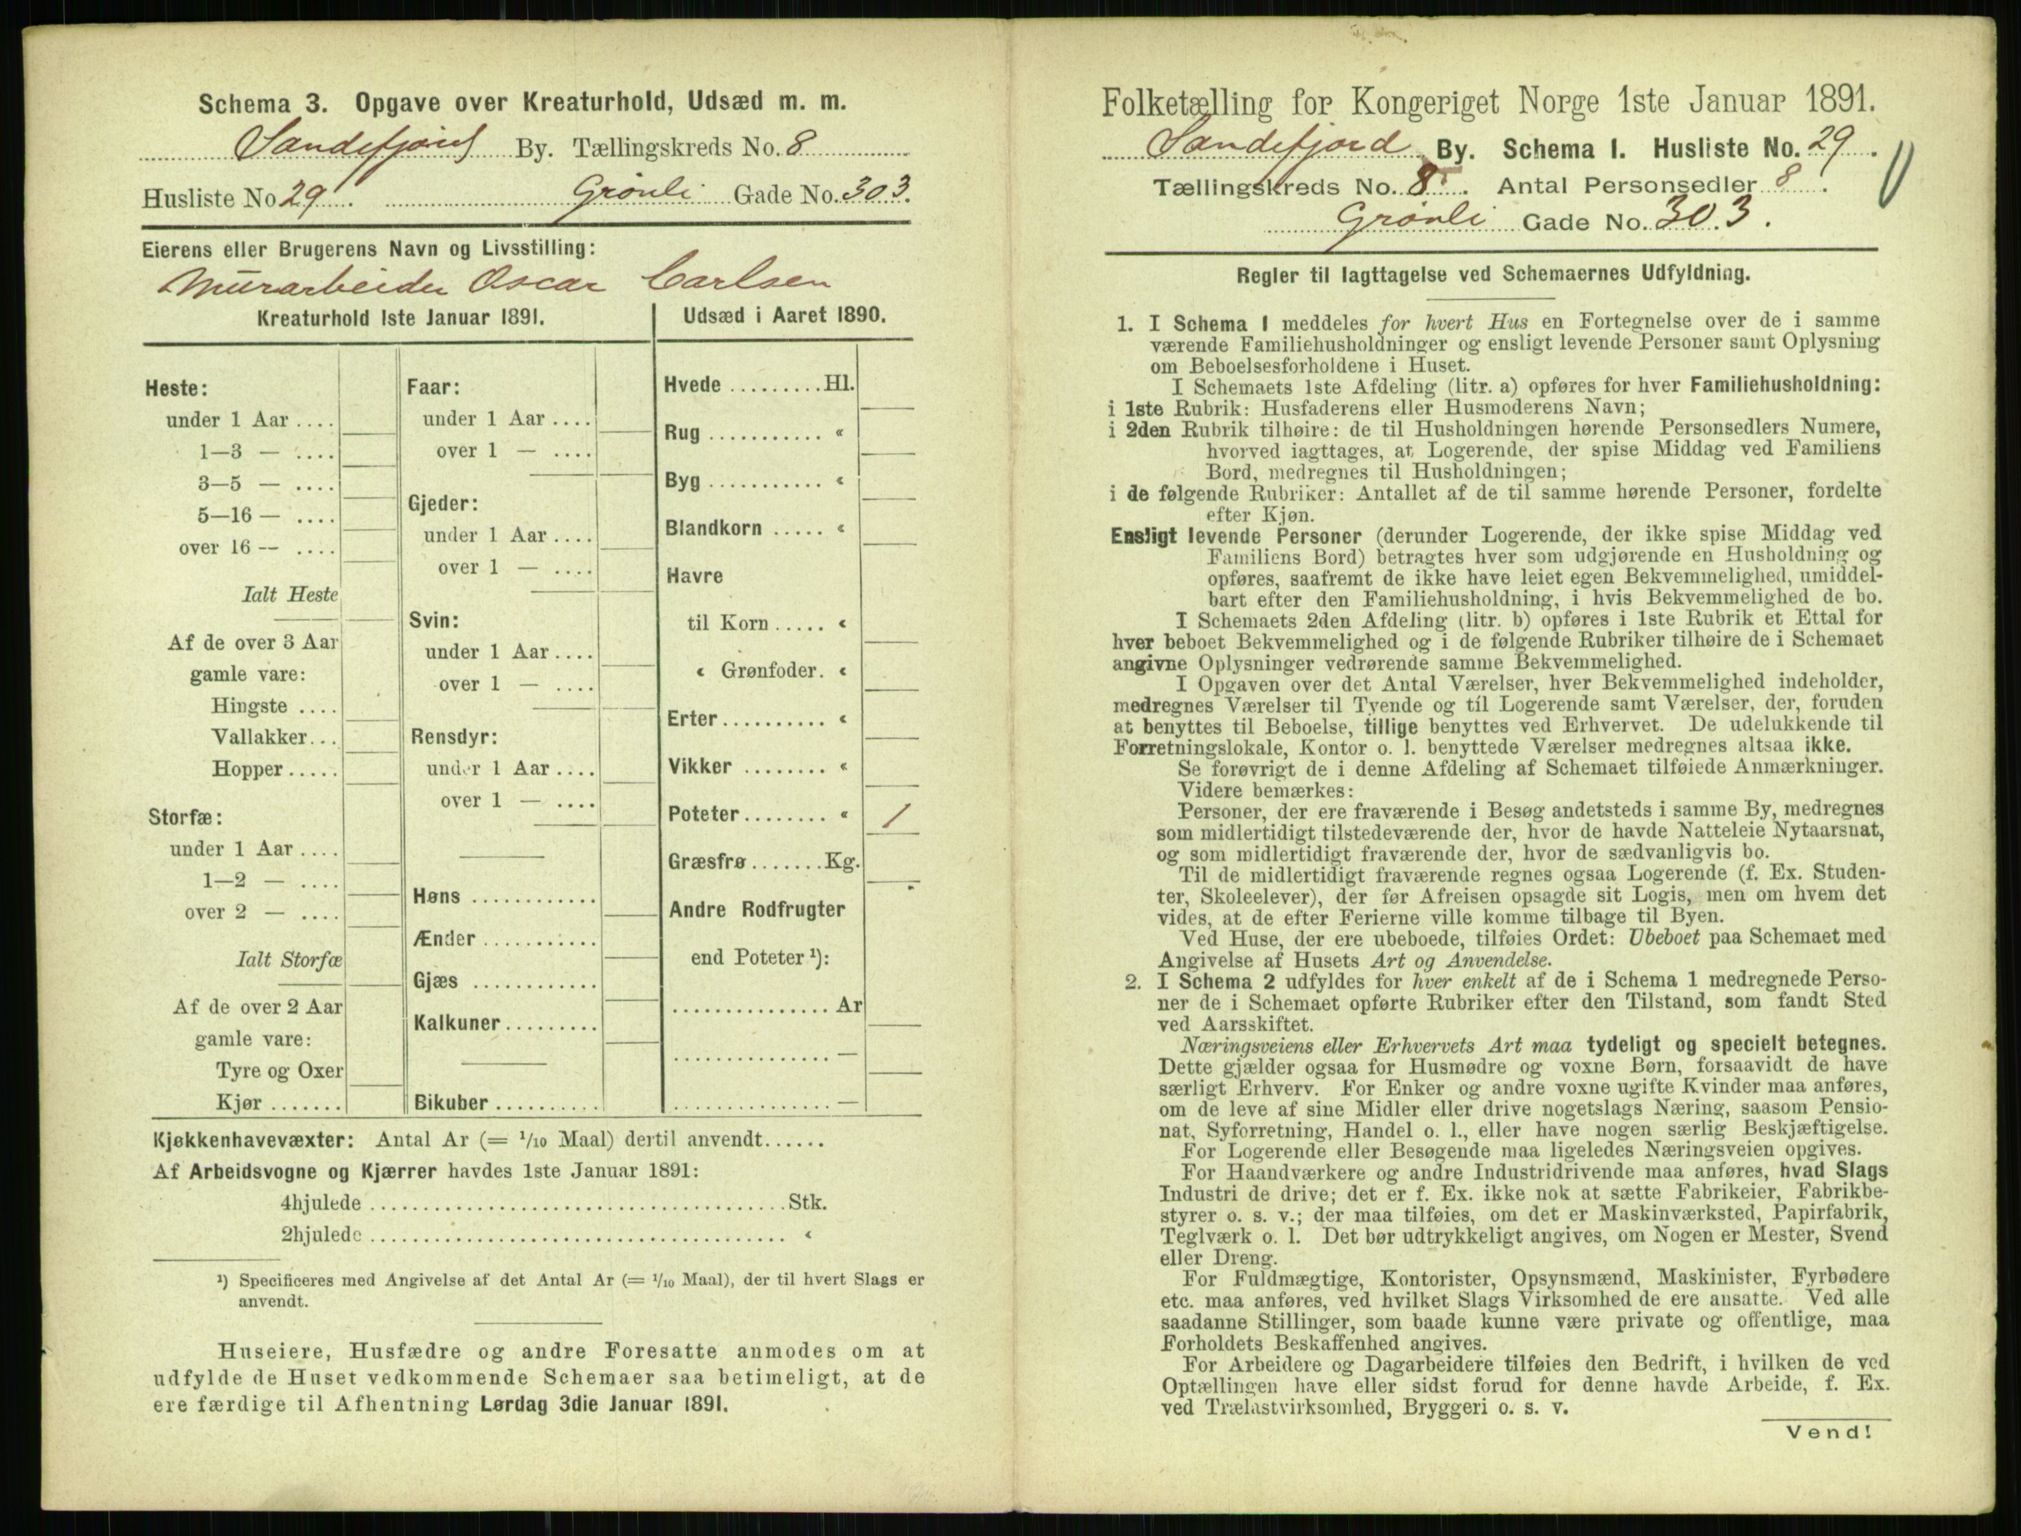 Schema 3. Opgave over Kreaturhold, Udsæd m. m.
Sandefjord By. Tællingskreds No. 8
Husliste No 29. Grønli Gade No. 303.
Eierens eller Brugerens Navn og Livsstilling:
Murarbeider Oscar Carlsen
Kreaturhold 1ste Januar 1891.
Udsæd i Aaret 1890.
Heste:
under 1 Aar ....
1—3 — ....
3—5 — ....
5—16 — ....
over 16 — ....
Ialt Heste
Af de over 3 Aar
gamle vare:
Hingste ....
Vallakker...
Hopper.....
Storfæ:
under 1 Aar ....
1—2 — ....
over 2 — ....
Ialt Storfæ
Af de over 2 Aar
gamle vare:
Tyre og Oxer
Kjør .......
Faar:
under 1 Aar ....
over 1 — ....
Gjeder:
under 1 Aar ....
over 1 — ....
Svin:
under 1 Aar ....
over 1 — ....
Rensdyr:
under 1 Aar ....
over 1 — ....
Høns ............
Ænder ...........
Gjæs ............
Kalkuner.........
Bikuber ..........
Hvede .........Hl.
Rug ........... «
Byg ........... «
Blandkorn ..... «
Havre
til Korn ..... «
« Grønfoder. «
Erter.......... «
Vikker ........ «
Poteter........ « 1
Græsfrø .......Kg.
Andre Rodfrugter
end Poteter ¹):
............... Ar
............... —
............... —
Kjøkkenhavevæxter: Antal Ar (= 1/10 Maal) dertil anvendt......
Af Arbeidsvogne og Kjærrer havdes 1ste Januar 1891:
4hjulede ......................................Stk.
2hjulede ...................................... «
¹) Specificeres med Angivelse af det Antal Ar (= 1/10 Maal), der til hvert Slags er
anvendt.
Huseiere, Husfædre og andre Foresatte anmodes om at
udfylde de Huset vedkommende Schemaer saa betimeligt, at de
ere færdige til Afhentning Lørdag 3die Januar 1891.
Folketælling for Kongeriget Norge 1ste Januar 1891.
Sandefjord By. Schema 1. Husliste No. 29.
Tællingskreds No. 8. Antal Personsedler 8.
Grønli Gade No. 303.
Regler til Iagttagelse ved Schemaernes Udfyldning.
1. I Schema 1 meddeles for hvert Hus en Fortegnelse over de i samme
værende Familiehusholdninger og ensligt levende Personer samt Oplysning
om Beboelsesforholdene i Huset.
I Schemaets 1ste Afdeling (litr. a) opføres for hver Familiehusholdning:
i 1ste Rubrik: Husfaderens eller Husmoderens Navn;
i 2den Rubrik tilhøire: de til Husholdningen hørende Personsedlers Numere,
hvorved iagttages, at Logerende, der spise Middag ved Familiens
Bord, medregnes til Husholdningen;
i de følgende Rubriker: Antallet af de til samme hørende Personer, fordelte
efter Kjøn.
Ensligt levende Personer (derunder Logerende, der ikke spise Middag ved
Familiens Bord) betragtes hver som udgjørende en Husholdning og
opføres, saafremt de ikke have leiet egen Bekvemmelighed, umiddel-
bart efter den Familiehusholdning, i hvis Bekvemmelighed de bo.
I Schemaets 2den Afdeling (litr. b) opføres i 1ste Rubrik et Ettal for
hver beboet Bekvemmelighed og i de følgende Rubriker tilhøire de i Schemaet
angivne Oplysninger vedrørende samme Bekvemmelighed.
I Opgaven over det Antal Værelser, hver Bekvemmelighed indeholder,
medregnes Værelser til Tyende og til Logerende samt Værelser, der, foruden
at benyttes til Beboelse, tillige benyttes ved Erhvervet. De udelukkende til
Forretningslokale, Kontor o. l. benyttede Værelser medregnes altsaa ikke.
Se forøvrigt de i denne Afdeling af Schemaet tilføiede Anmærkninger.
Videre bemærkes:
Personer, der ere fraværende i Besøg andetsteds i samme By, medregnes
som midlertidigt tilstedeværende der, hvor de havde Natteleie Nytaarsnat,
og som midlertidigt fraværende der, hvor de sædvanligvis bo.
Til de midlertidigt fraværende regnes ogsaa Logerende (f. Ex. Studen-
ter, Skoleelever), der før Afreisen opsagde sit Logis, men om hvem det
vides, at de efter Ferierne ville komme tilbage til Byen.
Ved Huse, der ere ubeboede, tilføies Ordet: Ubeboet paa Schemaet med
Angivelse af Husets Art og Anvendelse.
2. I Schema 2 udfyldes for hver enkelt af de i Schema 1 medregnede Perso-
ner de i Schemaet opførte Rubriker efter den Tilstand, som fandt Sted
ved Aarsskiftet.
Næringsveiens eller Erhvervets Art maa tydeligt og specielt betegnes.
Dette gjælder ogsaa for Husmødre og voxne Børn, forsaavidt de have
særligt Erhverv. For Enker og andre voxne ugifte Kvinder maa anføres,
om de leve af sine Midler eller drive nogetslags Næring, saasom Pensio-
nat, Syforretning, Handel o. l., eller have nogen særlig Beskjæftigelse.
For Logerende eller Besøgende maa ligeledes Næringsveien opgives.
For Haandværkere og andre Industridrivende maa anføres, hvad Slags
Industri de drive; det er f. Ex. ikke nok at sætte Fabrikeier, Fabrikbe-
styrer o. s. v.; der maa tilføies, om det er Maskinværksted, Papirfabrik,
Teglværk o. l. Det bør udtrykkeligt angives, om Nogen er Mester, Svend
eller Dreng.
For Fuldmægtige, Kontorister, Opsynsmænd, Maskinister, Fyrbødere
etc. maa anføres, ved hvilket Slags Virksomhed de ere ansatte. Ved alle
saadanne Stillinger, som baade kunne være private og offentlige, maa
Forholdets Beskaffenhed angives.
For Arbeidere og Dagarbeidere tilføies den Bedrift, i hvilken de ved
Optællingen have eller sidst forud for denne havde Arbeide, f. Ex.
ved Trælastvirksomhed, Bryggeri o. s. v.
Vend!